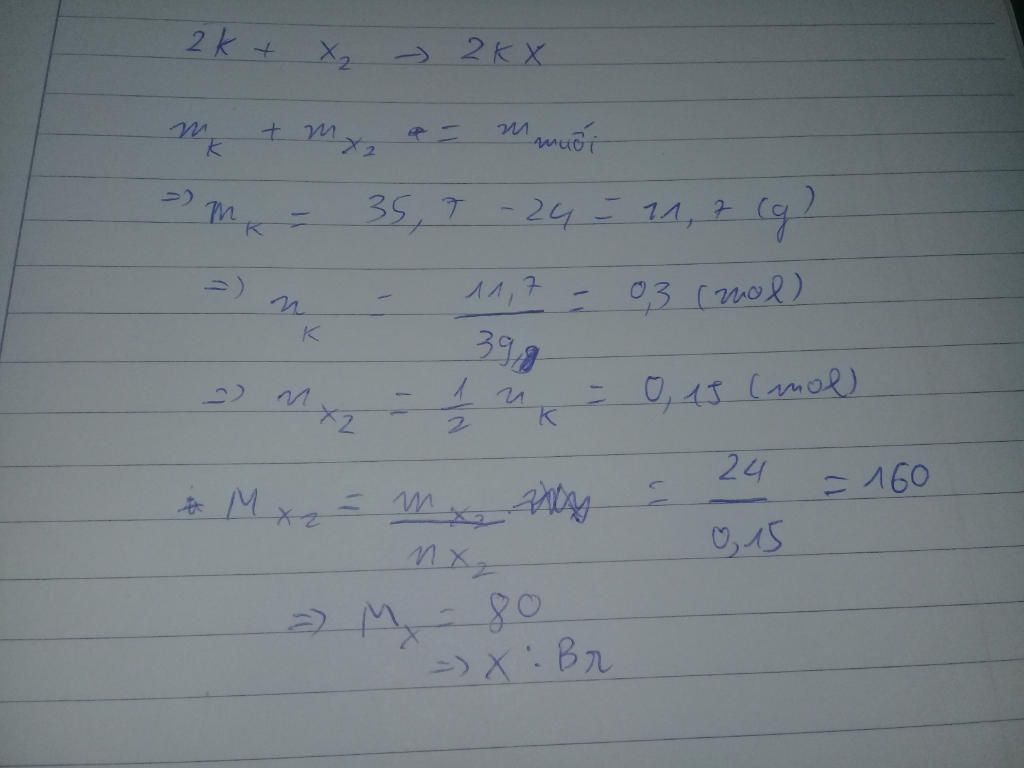 2K + X₂ → 2KX
m_K + m_X₂ = m_muối
=> m_K = 35,7 - 24 = 11,7 (g)
=> n_K = 11,7/39 = 0,3 (mol)
=> n_X₂ = 1/2 n_K = 0,15 (mol)
M_X₂ = m_X₂/n_X₂ = 24/0,15 = 160
=> M_X = 80
=> X : Br